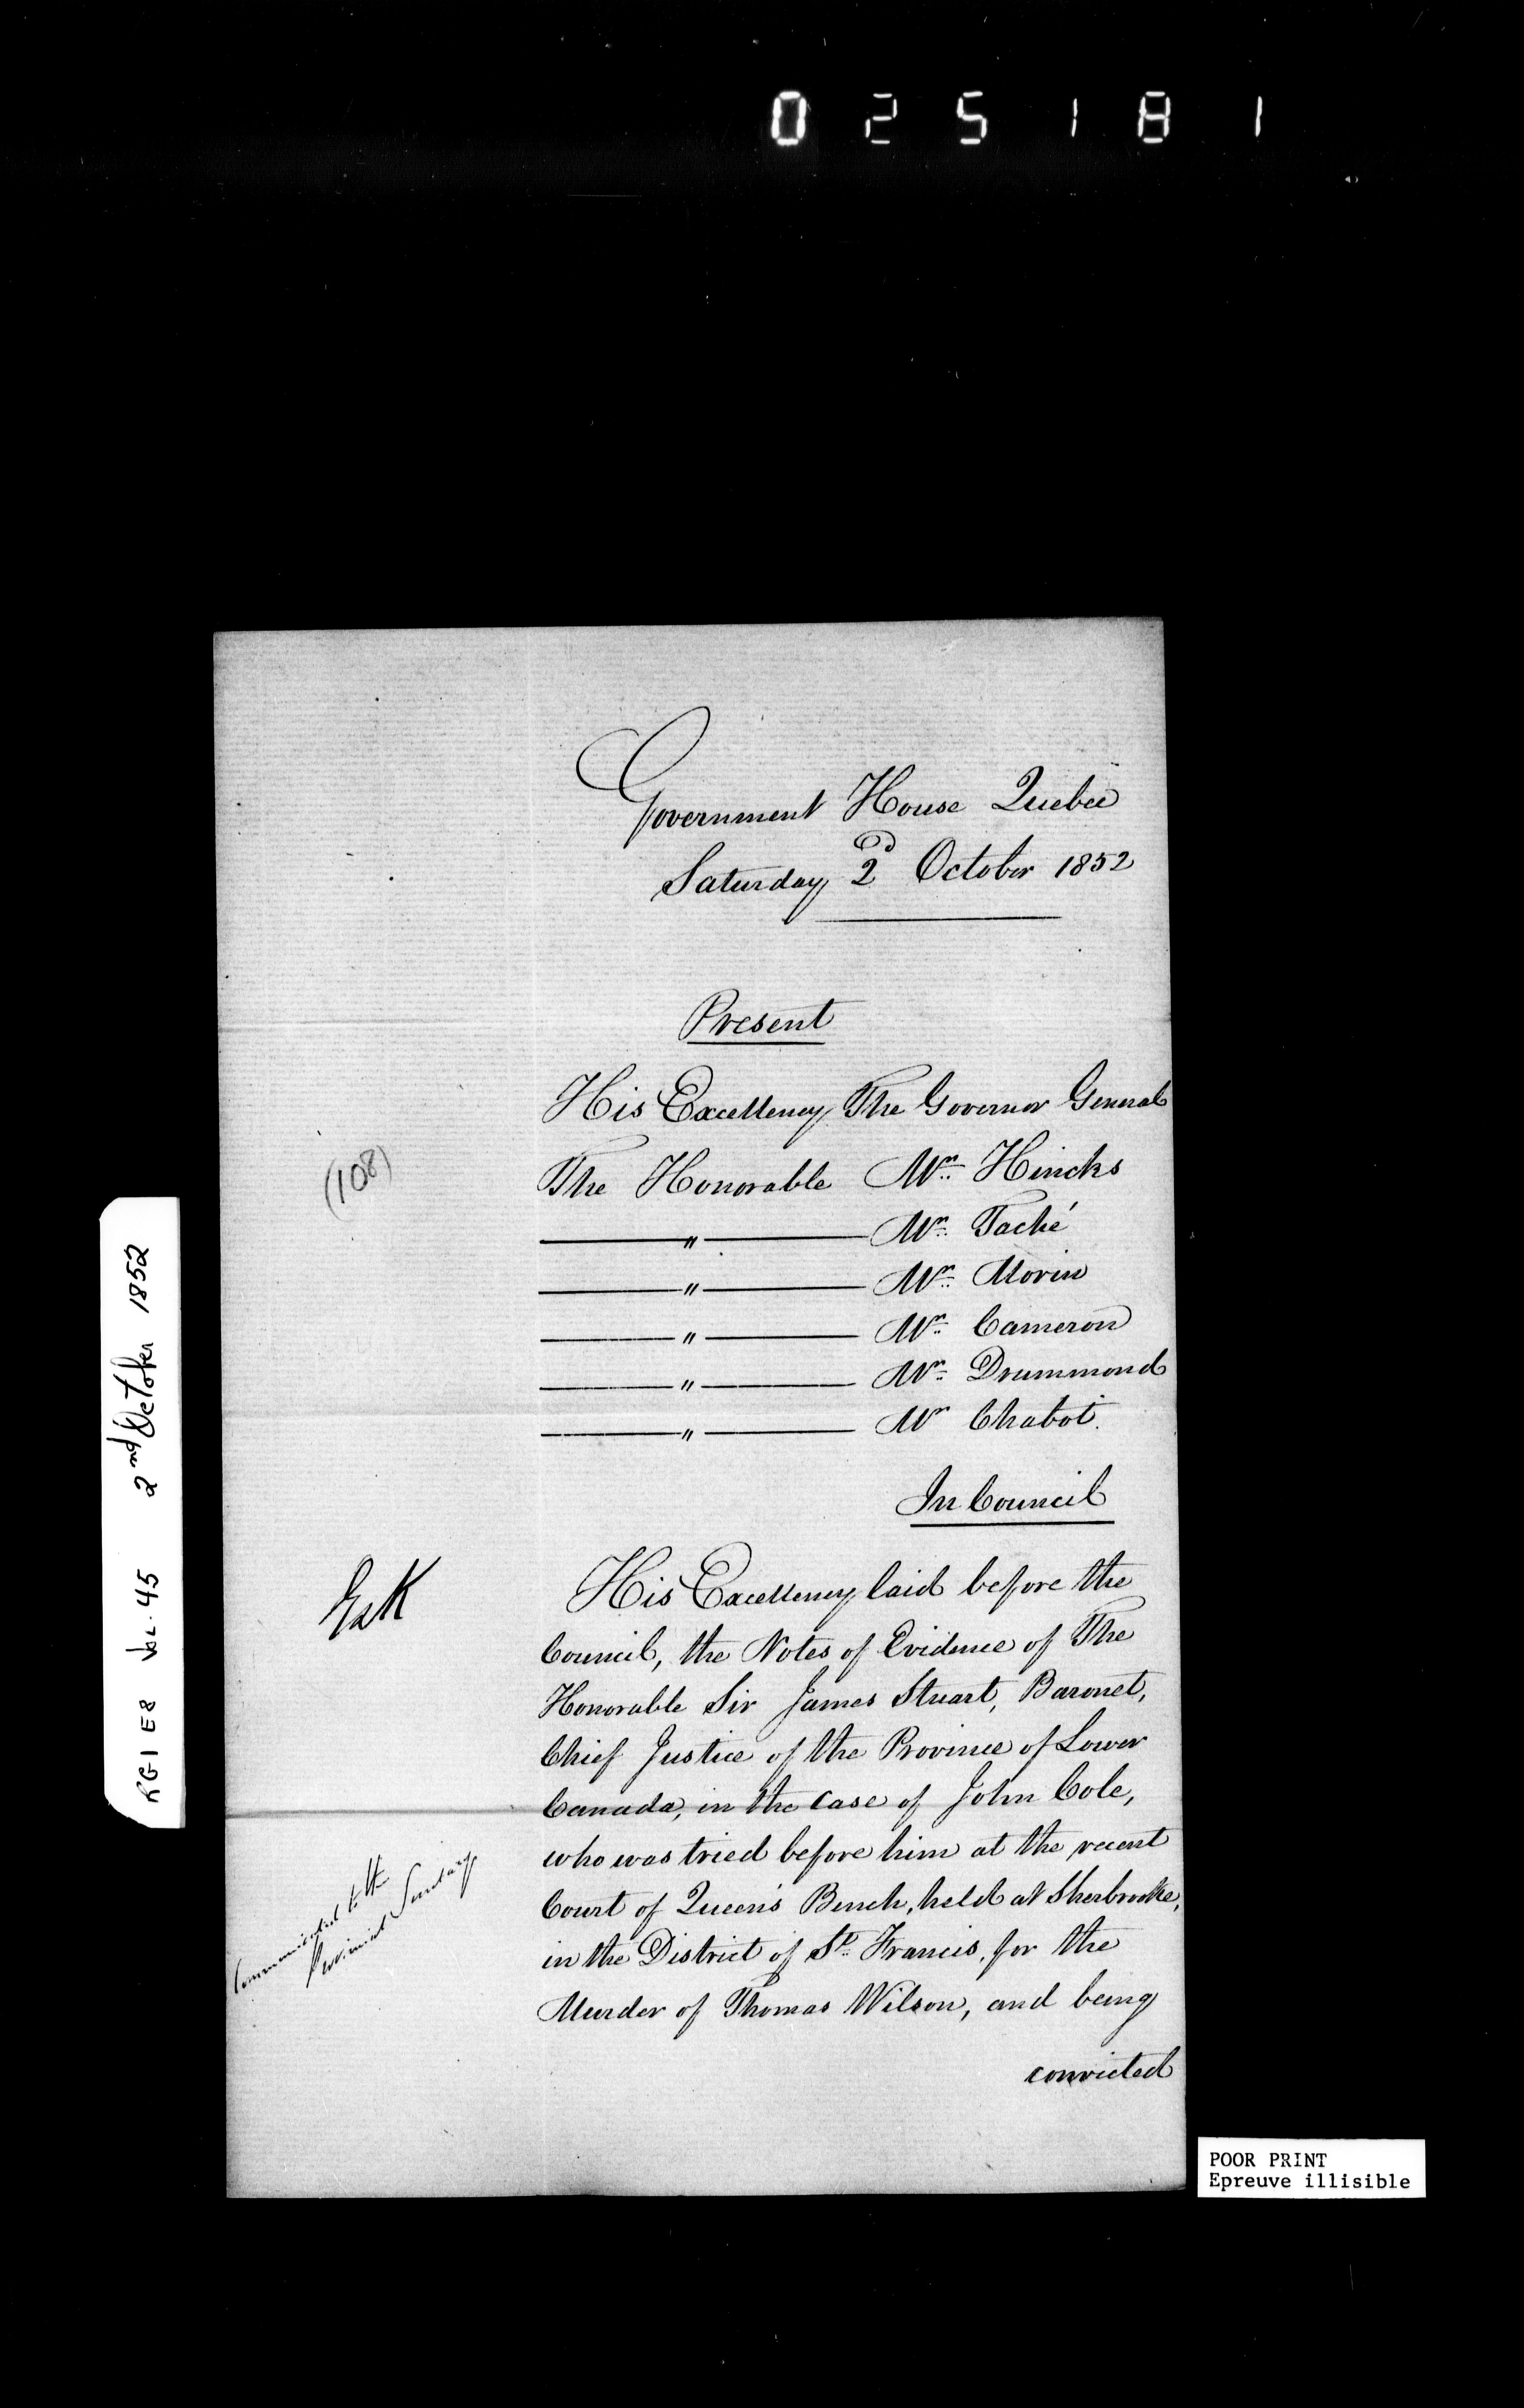 025181
Government House Quebec
Saturday 2d October 1852
Present
His Excellency The Governor General
(108)
The Honorable Mr. Hincks
" Mr. Taché
" Mr. Morin
" Mr. Cameron
" Mr. Drummond
" Mr Chabot.
In Council
E&K
His Excellency laid before the
Council, the Notes of Evidence of The
Honorable Sir James Stuart, Baronet,
Chief Justice of the Province of Lower
Canada, in the case of John Cole,
who was tried before him at the recent
Court of Queen's Bench, held at Sherbrooke,
in the District of St. Francis, for the
Murder of Thomas Wilson, and being
convicted
Communicated to the
Provincial Secretary
RG1 E8 Vol. 45 2nd October 1852
POOR PRINT
Epreuve illisible